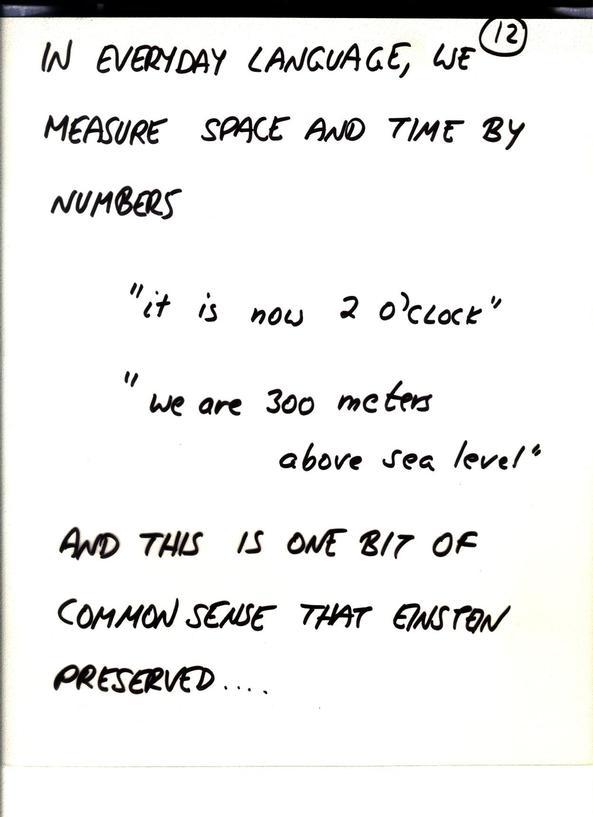 12
IN EVERYDAY LANGUAGE, WE
MEASURE SPACE AND TIME BY
NUMBERS
"it is now 2 O'CLOCK"
"we are 300 meters
above sea level"
AND THIS IS ONE BIT OF
COMMON SENSE THAT EINSTEIN
PRESERVED....